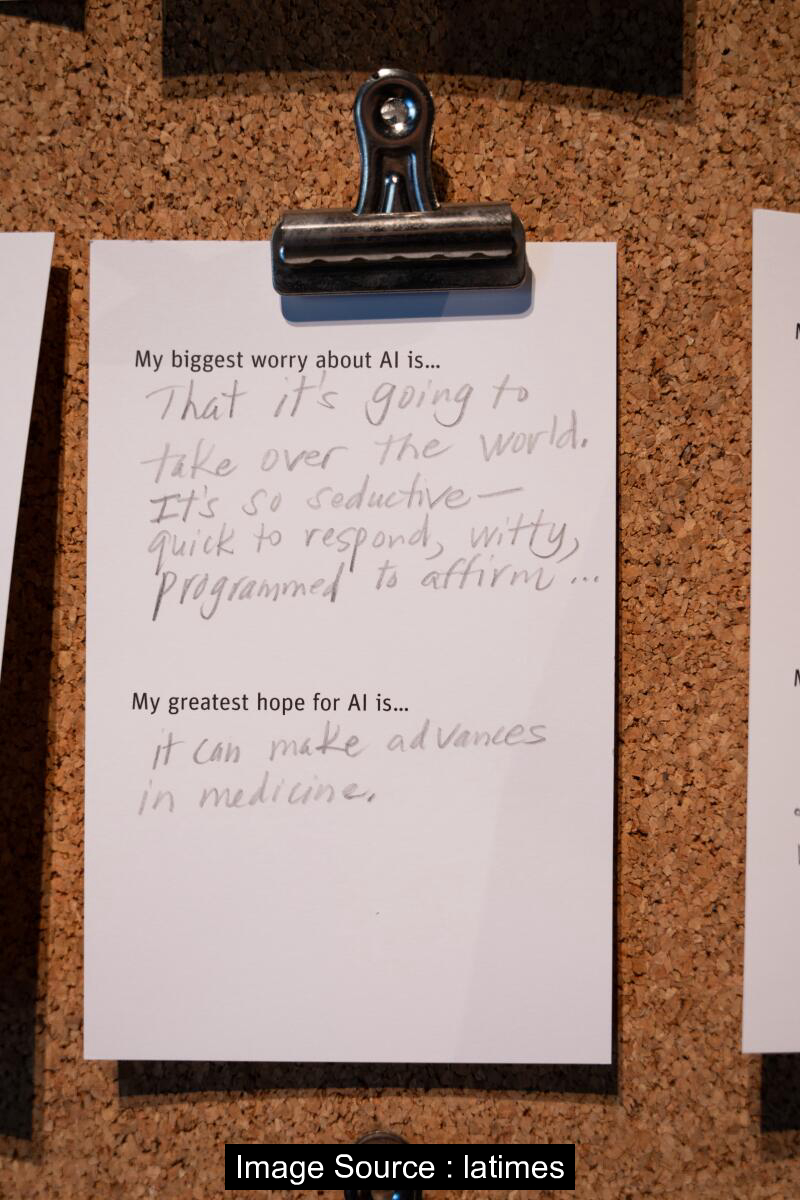 My biggest worry about AI is...
That it's going to
take over the world.
It's so seductive—
quick to respond, witty,
programmed to affirm...
My greatest hope for AI is...
it can make advances
in medicine.
Image Source : latimes